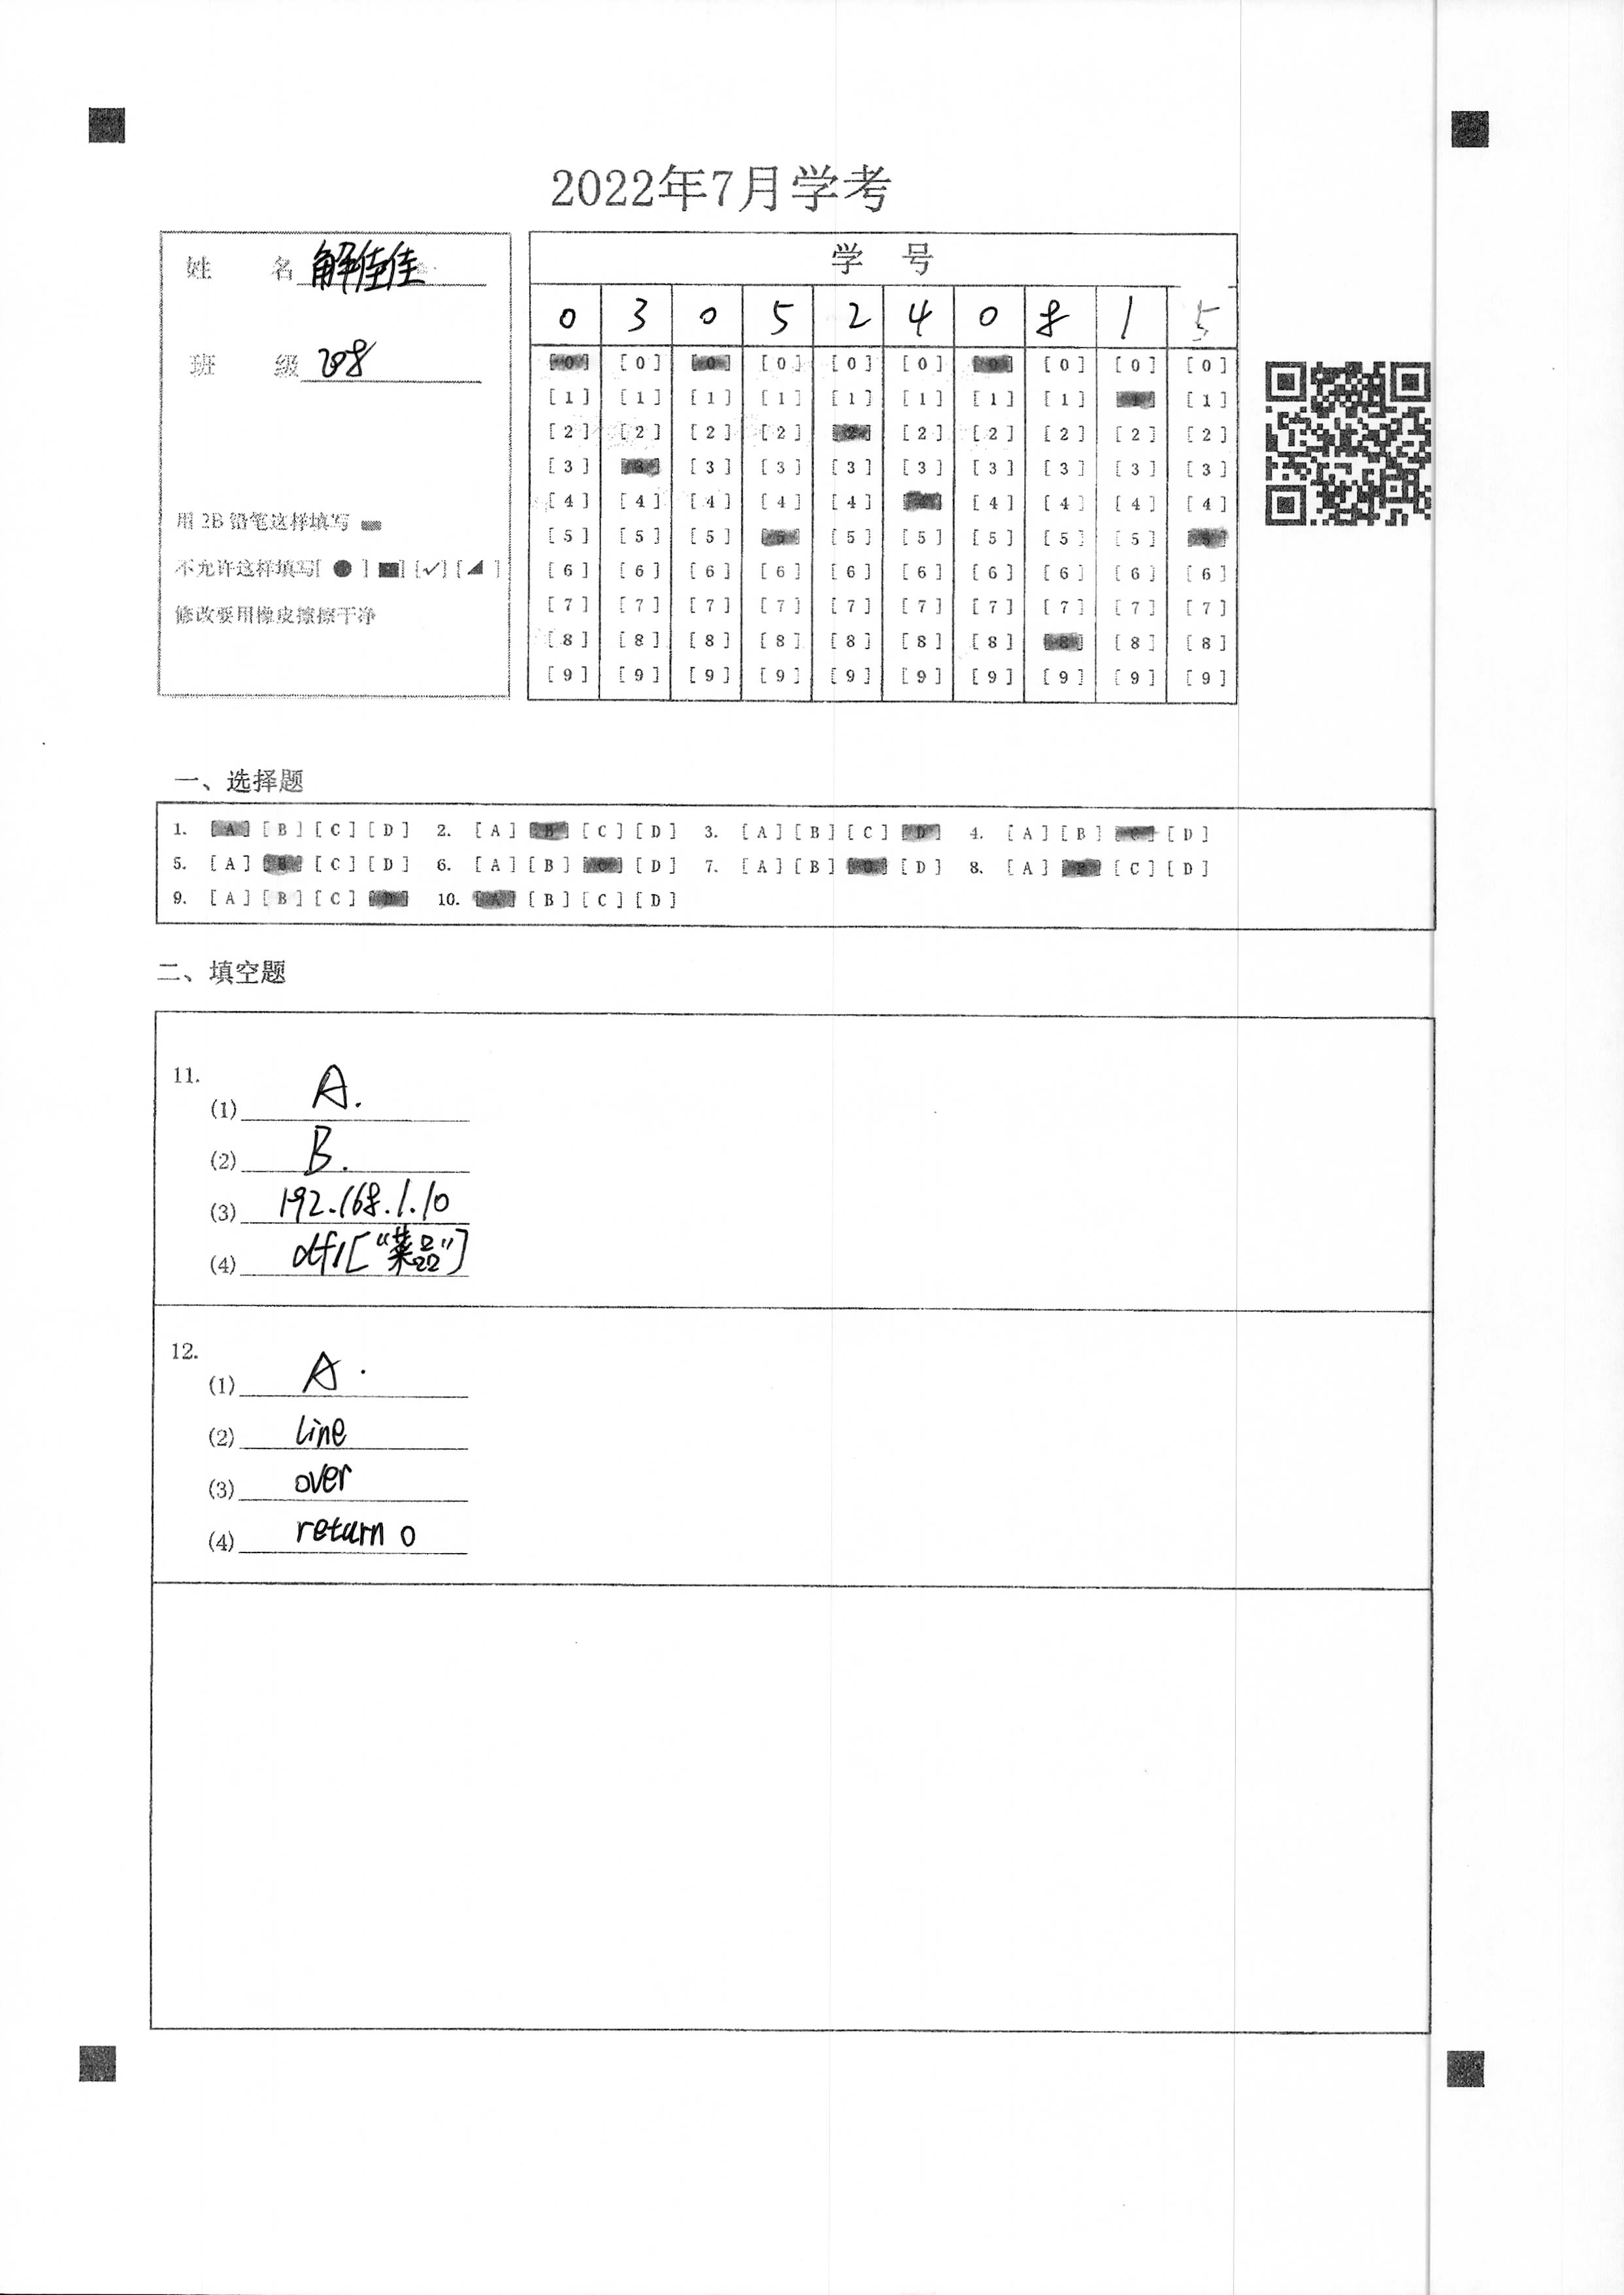 2022年7月学考
姓 名 解佳佳
班 级 208
用 2B 铅笔这样填写
不允许这样填写[ ● ] [■] [✓] [◢ ]
修改要用橡皮擦擦干净
学 号
0 3 0 5 2 4 0 8 1 5
[0] [0] [0] [0] [0] [0] [0] [0] [0] [0]
[1] [1] [1] [1] [1] [1] [1] [1] [1] [1]
[2] [2] [2] [2] [2] [2] [2] [2] [2] [2]
[3] [3] [3] [3] [3] [3] [3] [3] [3] [3]
[4] [4] [4] [4] [4] [4] [4] [4] [4] [4]
[5] [5] [5] [5] [5] [5] [5] [5] [5] [5]
[6] [6] [6] [6] [6] [6] [6] [6] [6] [6]
[7] [7] [7] [7] [7] [7] [7] [7] [7] [7]
[8] [8] [8] [8] [8] [8] [8] [8] [8] [8]
[9] [9] [9] [9] [9] [9] [9] [9] [9] [9]
一、选择题
1. [A] [B] [C] [D] 2. [A] [B] [C] [D] 3. [A] [B] [C] [D] 4. [A] [B] [C] [D]
5. [A] [B] [C] [D] 6. [A] [B] [C] [D] 7. [A] [B] [C] [D] 8. [A] [B] [C] [D]
9. [A] [B] [C] [D] 10. [A] [B] [C] [D]
二、填空题
11.
(1) A.
(2) B.
(3) 192.168.1.10
(4) df1["菜品"]
12.
(1) A.
(2) line
(3) over
(4) return 0